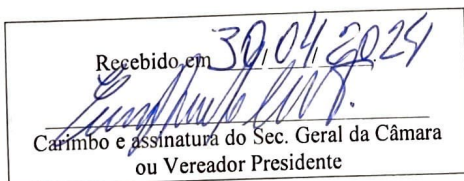 Recebido em 30/04/2024
Carimbo e assinatura do Sec. Geral da Câmara
ou Vereador Presidente